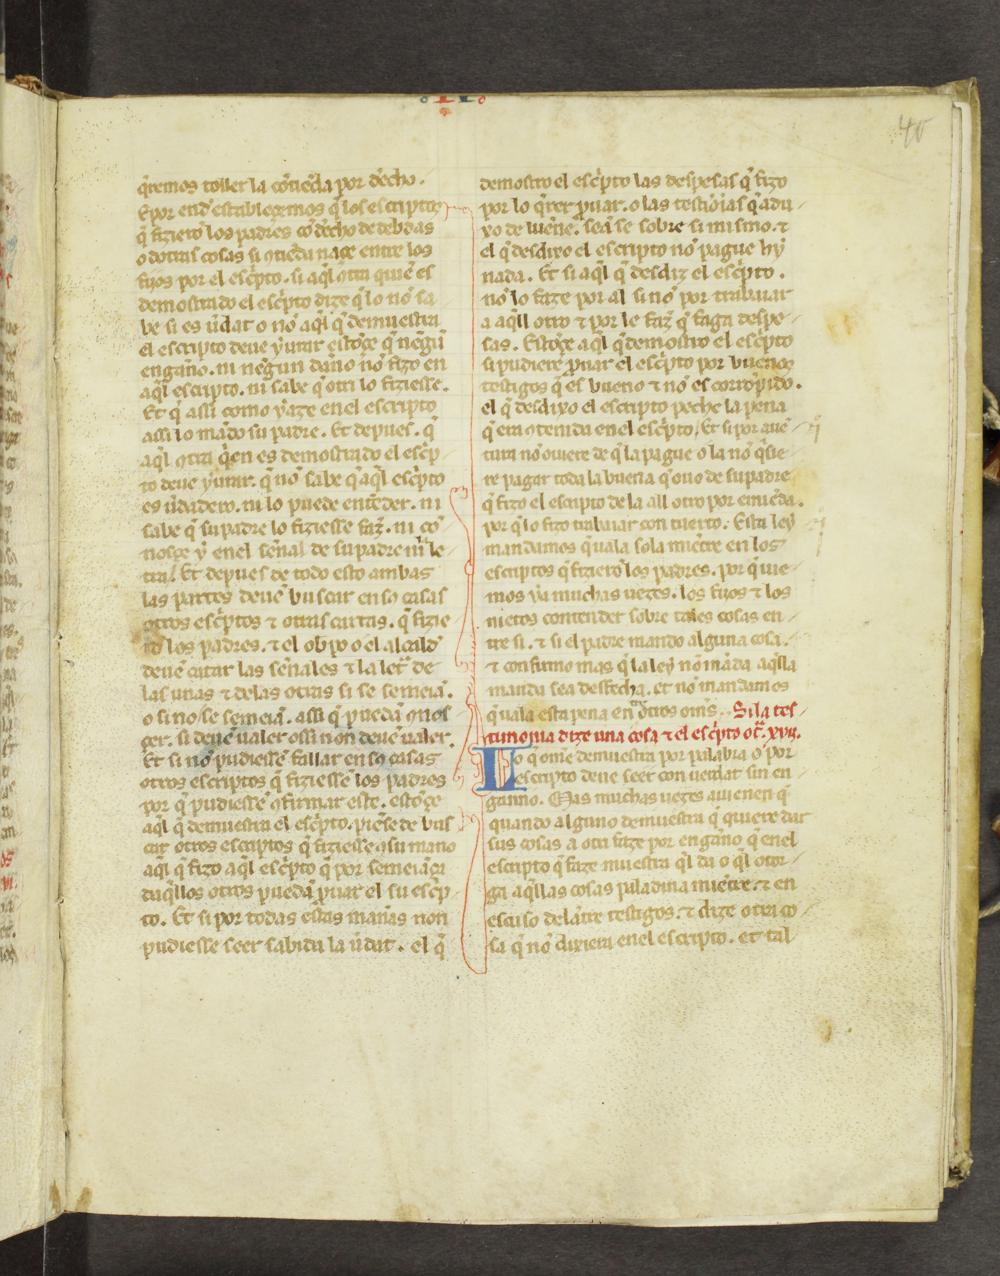 II
40
q̃remos toller la cõtiẽda por d̃echo.
E por end establezemos q̃ los escriptos
q̃ fizierõ los padres cõ d̃echo de debdas
o dotras cosas si ɔtieda naçe entre los
fijos por el esc̃pto. si aq̃l ɔtra quiẽ es
demostrado el esc̃pto dize q̃ lo nõ sa
be si es ũdat o nõ aq̃l q̃ demuestra
el escripto deue yurar estõçe q̃ negũ
engãno. ni negun dãno nõ fizo en
aq̃l escripto. ni sabe q̃ otri lo fiziesse.
Et q̃ assi como yaze en el escripto
assi lo mãdo su padre. Et depues. q̃
aq̃l ɔtra q̃en es demostrado el esc̃p
to deue yurar. q̃ nõ sabe q̃ aq̃l esc̃pto
es ũdadero. ni lo puede entẽder. ni
sabe q̃ su padre lo fiziesse faz̃. ni co
nosçe y en el señal de su padre ni le
tra. Et depues de todo esto ambas
las partes deuẽ buscar en so casas
otros esc̃ptos τ otras cartas. q̃ fizie
rõ los padres. τ el obpo o el alcald̃
deuẽ catar las señales τ la let̃ de
las unas τ de las otras si se semeiã.
o si no se semeiã. assi q̃ puedã ɔnos
çer. si deuẽ ualer o si non deuẽ ualer.
Et si nõ pudiessẽ fallar en so casas
otros escriptos q̃ fiziessẽ los padres
por q̃ pudiessẽ ɔfirmar este. estõçe
aq̃l q̃ demuestra el esc̃pto. piẽse de bus
car otros escriptos q̃ fiziesse ɔ su mano
aq̃l q̃ fizo aq̃l esc̃pto q̃ por semeiãça
daq̃llos otros puedã p̃uar el su esc̃p
to. Et si por todas estas mañas non
pudiesse seer sabida la ũdat. el q̃
demostro el esc̃pto las despesas q̃ fizo
por lo q̃rer p̃uar. o las testiõias q̃ adu
xo de buẽe. seã se sobre si mismo. τ
el q̃ desdixo el escripto nõ pague hy
nada. Et si aq̃l q̃ desdiz el esc̃pto.
nõ lo faze por al si nõ por trabaiar
a aq̃ll otro τ por le faz̃ q̃ faga despe
sas. Estõçe aq̃l q̃ demostro el esc̃pto
si pudierẽ p̃uar el esc̃pto por buenos
testigos q̃ es bueno τ nõ es corrõpido.
el q̃ desdixo el escripto peche la pena
q̃ era ɔtenida en el esc̃pto. Et si por auẽ
tura nõ ouiere de q̃ la pague o la nõ q̃sie
re pagar toda la buena q̃ ouo de su padre
q̃ fizo el escripto de la all otro por emiẽda.
por q̃ lo fizo trabaiar con tuerto. Esta ley
mandamos q̃ uala sola miẽtre en los
escriptos q̃ fizierõ los padres. por q̃ uie
mos ya muchas uezes. los fijos τ los
nietos contender sobre tales cosas en
tre si. τ si el padre mando alguna cosa.
τ confirmo mas q̃ la ley nõ mãda aq̃lla
manda sea desfecha. et nõ mandamos
q̃ uala esta pena en otros oms. Si la tes
timonia dize una cosa τ el esc̃pto ot̃. xvij.
Lo q̃ omẽ demuestra por palabra o por
escripto deue seer con uerdat sin en
ganno. Mas muchas uezes auienen q̃
quando alguno demuestra q̃ quiere dar
sus cosas a otri faze por engãno q̃ en el
escripto q̃ faze muestra q̃l da o q̃l otor
ga aq̃llas cosas paladina miẽtre. τ en
esc̃so delãtre testigos. τ dize otra co
sa q̃ nõ dixiera en el escripto. et tal